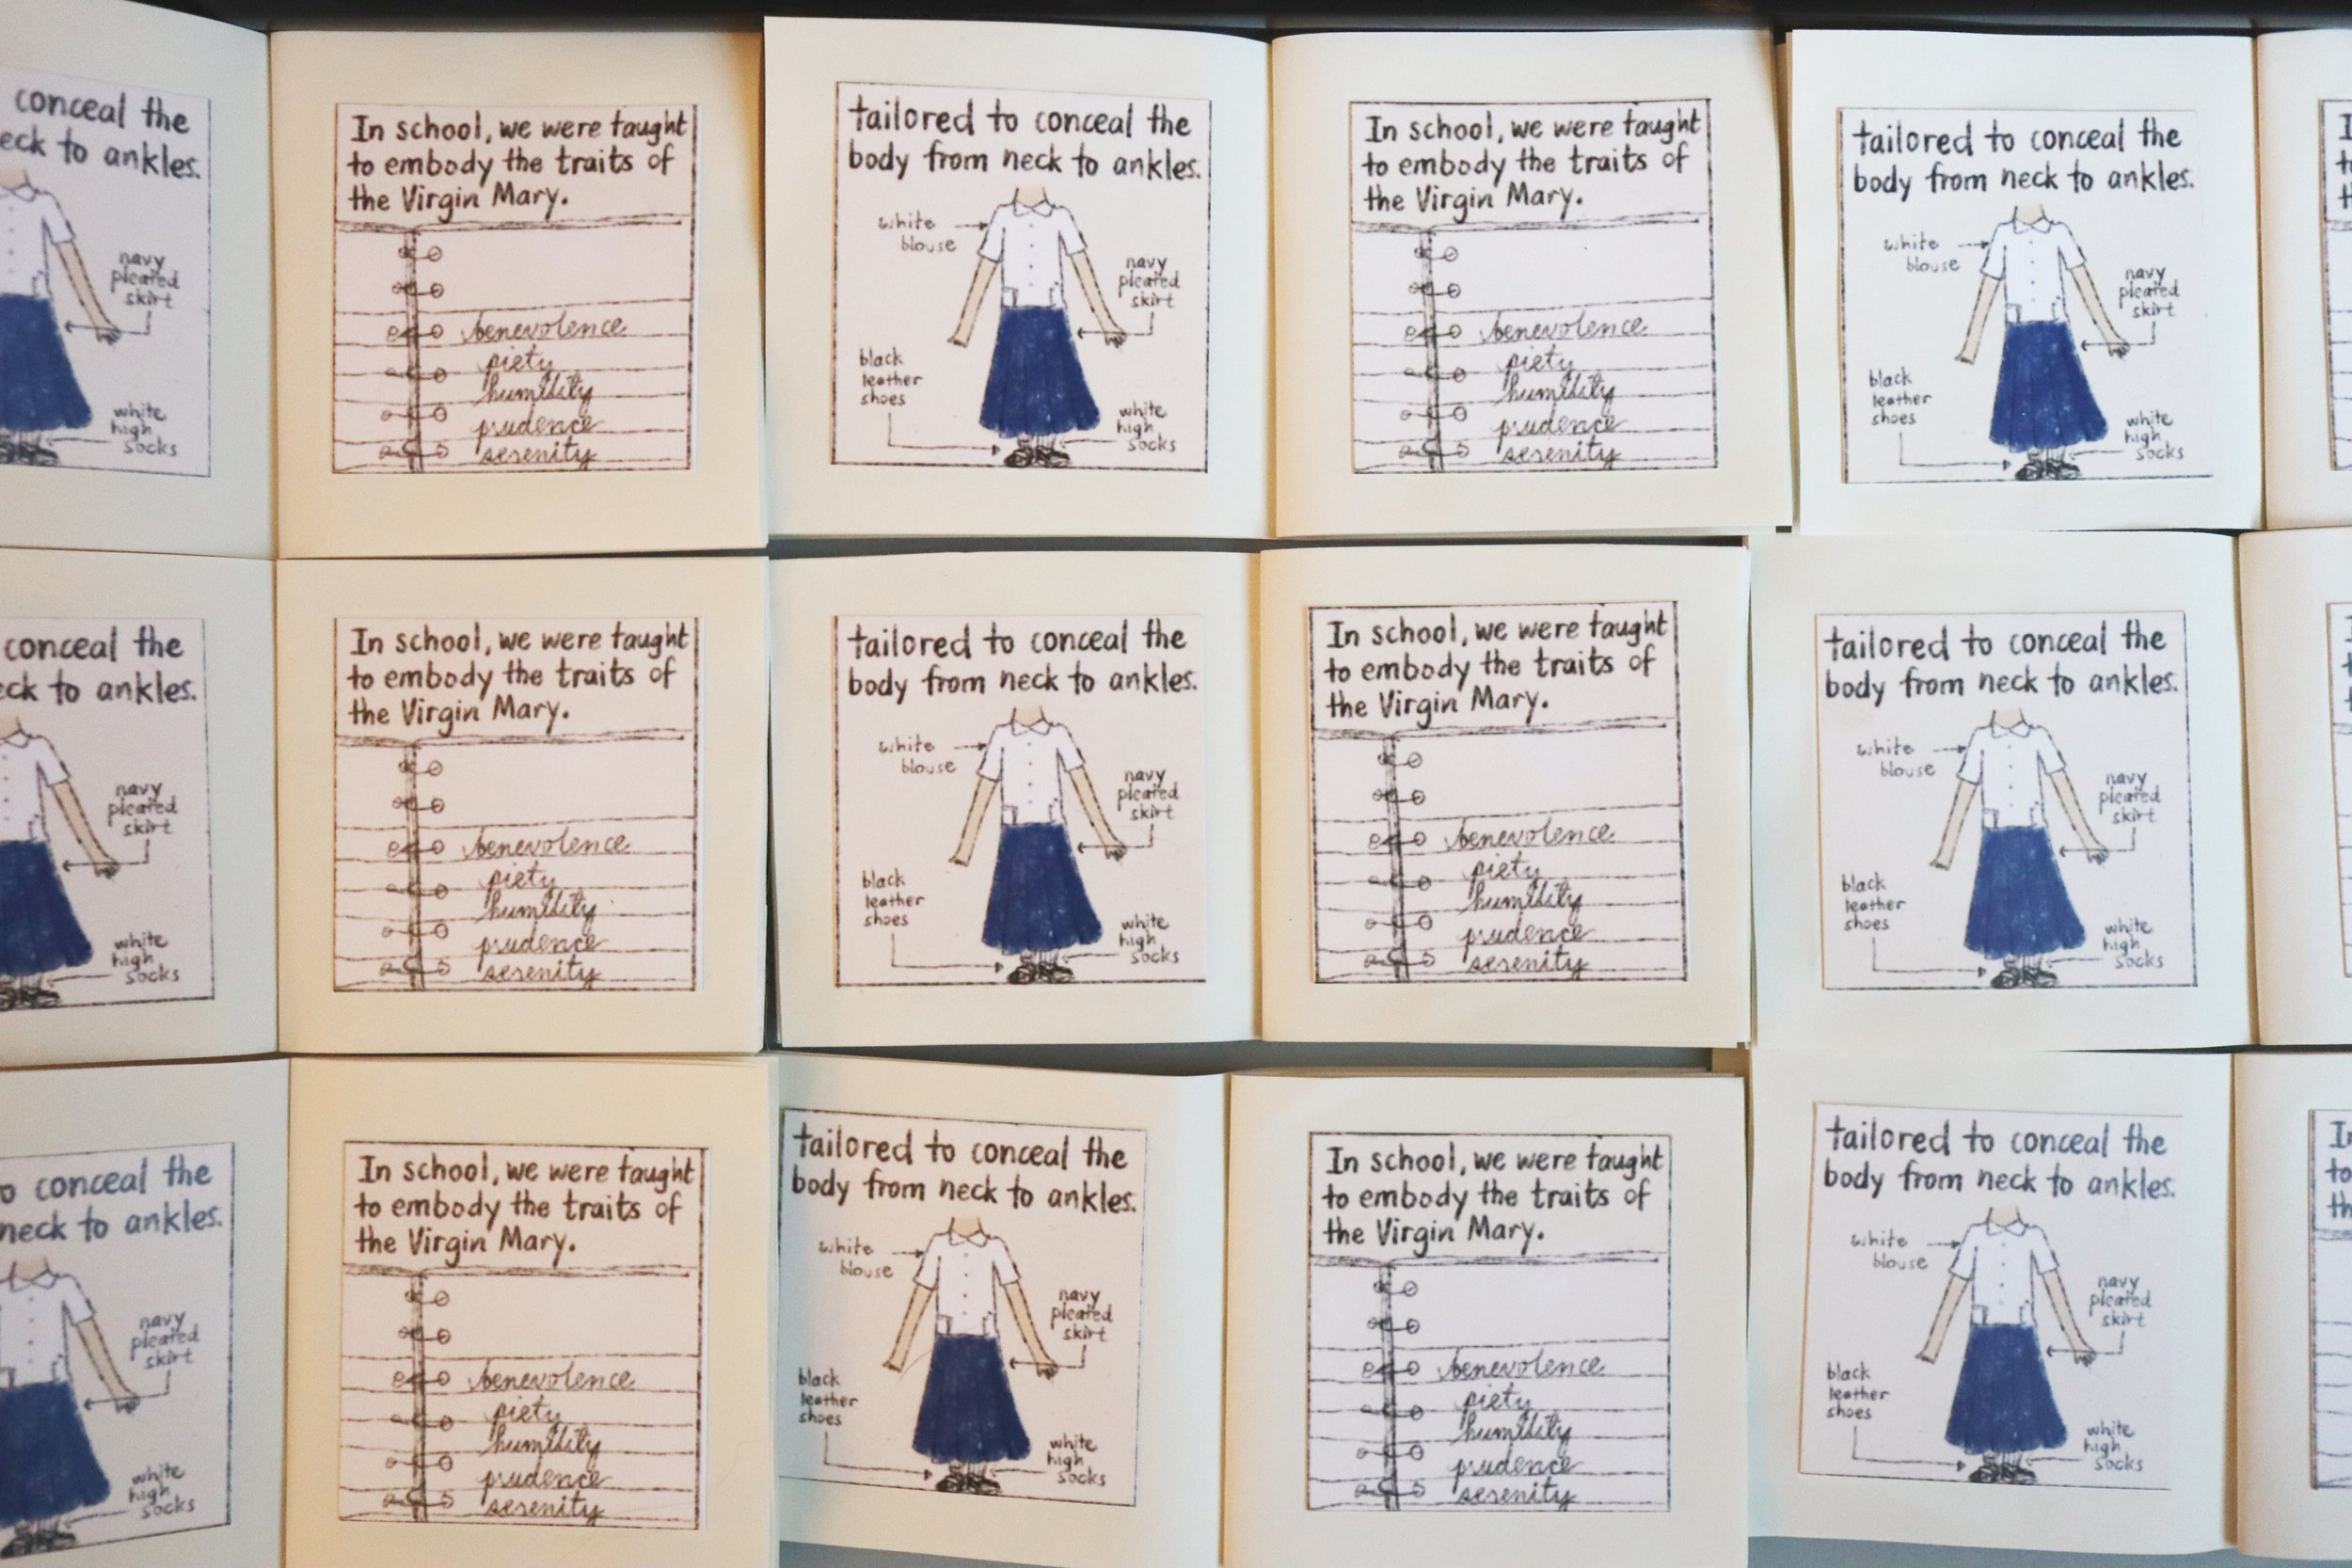 conceal the
eck to ankles.
navy
pleated
skirt
white
high
socks
In school, we were taught
to embody the traits of
the Virgin Mary.
benevolence
piety
humility
prudence
serenity
tailored to conceal the
body from neck to ankles.
white
blouse
navy
pleated
skirt
black
leather
shoes
white
high
socks
In school, we were taught
to embody the traits of
the Virgin Mary.
benevolence
piety
humility
prudence
serenity
tailored to conceal the
body from neck to ankles.
white
blouse
navy
pleated
skirt
black
leather
shoes
white
high
socks
conceal the
eck to ankles.
navy
pleated
skirt
white
high
socks
In school, we were taught
to embody the traits of
the Virgin Mary.
benevolence
piety
humility
prudence
serenity
tailored to conceal the
body from neck to ankles.
white
blouse
navy
pleated
skirt
black
leather
shoes
white
high
socks
In school, we were taught
to embody the traits of
the Virgin Mary.
benevolence
piety
humility
prudence
serenity
tailored to conceal the
body from neck to ankles.
white
blouse
navy
pleated
skirt
black
leather
shoes
white
high
socks
o conceal the
neck to ankles.
navy
pleated
skirt
white
high
socks
In school, we were taught
to embody the traits of
the Virgin Mary.
benevolence
piety
humility
prudence
serenity
tailored to conceal the
body from neck to ankles.
white
blouse
navy
pleated
skirt
black
leather
shoes
white
high
socks
In school, we were taught
to embody the traits of
the Virgin Mary.
benevolence
piety
humility
prudence
serenity
tailored to conceal the
body from neck to ankles.
white
blouse
navy
pleated
skirt
black
leather
shoes
white
high
socks
to